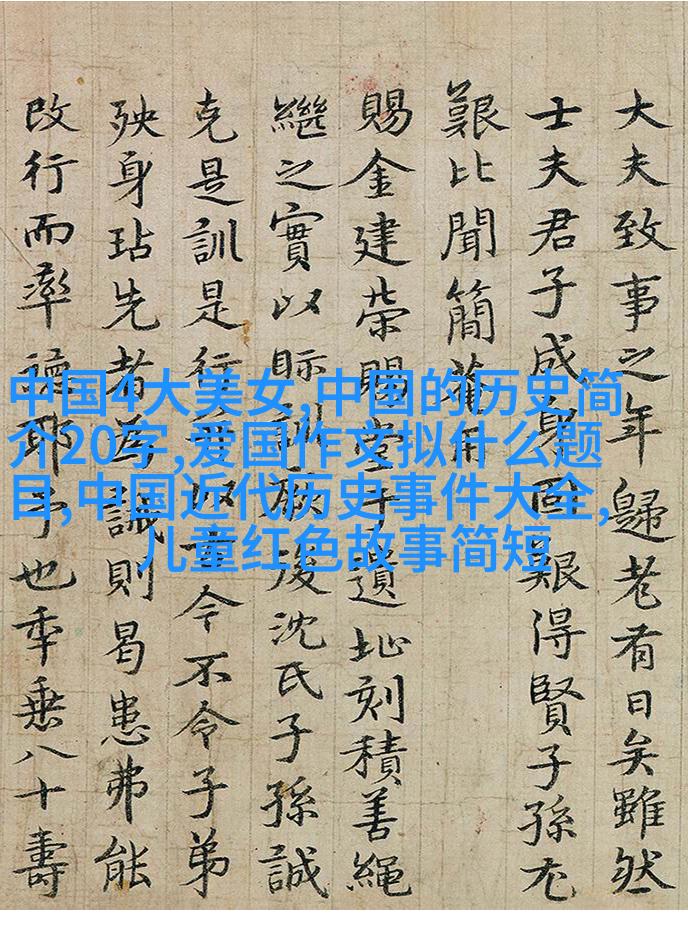 大夫致事之年歸老有日矣雖然
士夫君子成身固艱得賢子孫尤
艱比聞簡菴用
賜金建榮賜堂于遺址刻積善繩
繼之實以眎訓厥後沈氏子孫誠
克是訓是行令不令子弟
殃身玷先者為誡則曷患弗能
改行而率德耶予也年垂八十壽
中国4大美女,中国的历史简
介20字,爱国作文拟什么题
目,中国近代历史事件大全,
儿童红色故事简短